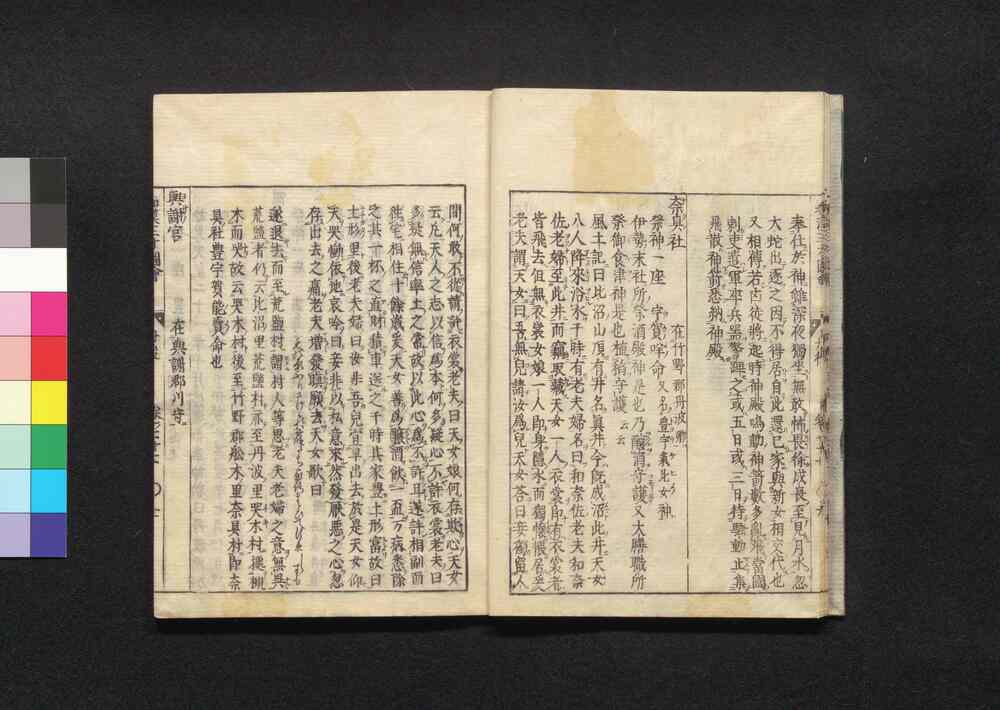 奉仕於神雖深夜獨坐無敢怖畏徐成長至見月水忽
大蛇出逐之因不得居自此還已家與新女相交代也
又相傳若凶徒將起時神殿鳴動神箭數多飛當國
則吏遣軍卒兵器警衞之或五日或三日持騷動止集
飛散神箭悉納神殿
奈具社 在竹野郡丹波鄉
祭神一座 宇賀哶命又名豊宇氣比女神
伊勢末社所祭酒殿神是也乃釀酒守護又大膳職所
祭御食津神是也植稻守護云云
風土記曰比沼山頂有井名眞井今既成沼此井天女
八人降來浴水于時有老夫婦名曰和奈佐老夫和奈
佐老婦至此井而竊取藏天女一人衣裳即有衣裳者
皆飛去但無衣裳女娘一人即身隱水而獨懷愧居爰
老夫謂天女曰吾無兒請汝爲兒天女答曰妾獨留人
間何敢不從請許衣裳老夫曰天女娘何存欺心天女
云凡天人之志以信爲本何多疑心不許衣裳老夫曰
多疑無信率土之常故以此心爲不許耳遂許相副而
往宅相住十餘歲爰天女善爲釀酒飲一盃万病悉除
之其一杯之直財積車送之于時其家豊土形富故曰
土形里後老夫婦曰汝非吾兒宜早出去於是天女仰
天哭慟俯地哀吟曰妾非以私意來然發厭惡之心忽
存出去之痛老夫增發瞋願去天女歌曰
遂退去而至荒鹽村謂村人等思老夫老婦之意無異
荒鹽者仍云比沼里荒鹽村亦至丹波里哭木村據槻
木而哭故云哭木村後至竹野郡船木里奈具村即奈
具社豊宇賀能賣命也
與謝宮 在與謝郡川守